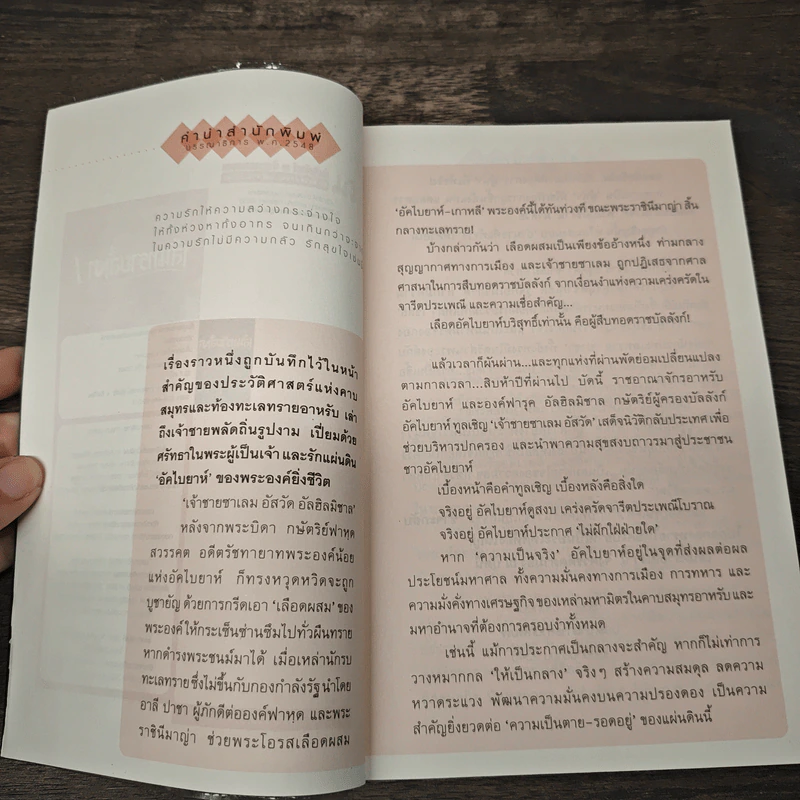 คำนำสำนักพิมพ์
บรรณาธิการ พ.ศ.2548
ความรักให้ความสว่างกระจ่างใจ
ให้ทั้งห่วงหาทั้งอาทร จนเกินกว่าจะ
ในความรักไม่มีความกลัว รักสุขใจ
เรื่องราวหนึ่งถูกบันทึกไว้ในหน้า
สำคัญของประวัติศาสตร์แห่งคาบ
สมุทรและท้องทะเลทรายอาหรับ เล่า
ถึงเจ้าชายพลัดถิ่นรูปงาม เปี่ยมด้วย
ศรัทธาในพระผู้เป็นเจ้า และรักแผ่นดิน
‘อัคไบยาห์’ ของพระองค์ยิ่งชีวิต
‘เจ้าชายซาเลม อัสวัด อัลฮิลมิซาล’
หลังจากพระบิดา กษัตริย์ฟาหุด
สวรรคต อดีตรัชทายาทพระองค์น้อย
แห่งอัคไบยาห์ ก็ทรงหวุดหวิดจะถูก
บูชายัญ ด้วยการกรีดเอา ‘เลือดผสม’ ของ
พระองค์ให้กระเซ็นซ่านซึมไปทั่วผืนทราย
หากดำรงพระชนม์มาได้ เมื่อเหล่านักรบ
ทะเลทรายซึ่งไม่ขึ้นกับกองกำลังรัฐ นำโดย
อาลี ปาชา ผู้ภักดีต่อองค์ฟาหุด และพระ
ราชินีมาญ่า ช่วยพระโอรสเลือดผสม
‘อัคไบยาห์–เกาหลี’ พระองค์นี้ได้ทันท่วงที ขณะพระราชินีมาญ่า สิ้น
กลางทะเลทราย!
บ้างกล่าวกันว่า เลือดผสมเป็นเพียงข้ออ้างหนึ่ง ท่ามกลาง
สุญญากาศทางการเมือง และเจ้าชายซาเลม ถูกปฏิเสธจากศาล
ศาสนาในการสืบทอดราชบัลลังก์ จากเงื่อนงำแห่งความเคร่งครัดใน
จารีตประเพณี และความเชื่อสำคัญ...
เลือดอัคไบยาห์บริสุทธิ์เท่านั้น คือผู้สืบทอดราชบัลลังก์!
แล้วเวลาก็ผันผ่าน...และทุกแห่งที่ผ่านพัดย่อมเปลี่ยนแปลง
ตามกาลเวลา...สิบห้าปีที่ผ่านไป บัดนี้ ราชอาณาจักรอาหรับ
อัคไบยาห์ และองค์ฟารุค อัลฮิลมิซาล กษัตริย์ผู้ครองบัลลังก์
อัคไบยาห์ ทูลเชิญ ‘เจ้าชายซาเลม อัสวัด’ เสด็จนิวัติกลับประเทศ เพื่อ
ช่วยบริหารปกครอง และนำพาความสุขสงบถาวรมาสู่ประชาชน
ชาวอัคไบยาห์
เบื้องหน้าคือคำทูลเชิญ เบื้องหลังคือสิ่งใด
จริงอยู่ อัคไบยาห์ดูสงบ เคร่งครัดจารีตประเพณีโบราณ
จริงอยู่ อัคไบยาห์ประกาศ ‘ไม่ฝักใฝ่ฝ่ายใด’
หาก ‘ความเป็นจริง’ อัคไบยาห์อยู่ในจุดที่ส่งผลต่อผล
ประโยชน์มหาศาล ทั้งความมั่นคงทางการเมือง การทหาร และ
ความมั่งคั่งทางเศรษฐกิจ ของเหล่ามหามิตรในคาบสมุทรอาหรับ และ
มหาอำนาจที่ต้องการครอบงำทั้งหมด
เช่นนี้ แม้การประกาศเป็นกลางจะสำคัญ หากก็ไม่เท่าการ
วางหมากกล ‘ให้เป็นกลาง’ จริงๆ สร้างความสมดุล ลดความ
หวาดระแวง พัฒนาความมั่นคงบนความปรองดอง เป็นความ
สำคัญยิ่งยวดต่อ ‘ความเป็นตาย–รอดอยู่’ ของแผ่นดินนี้